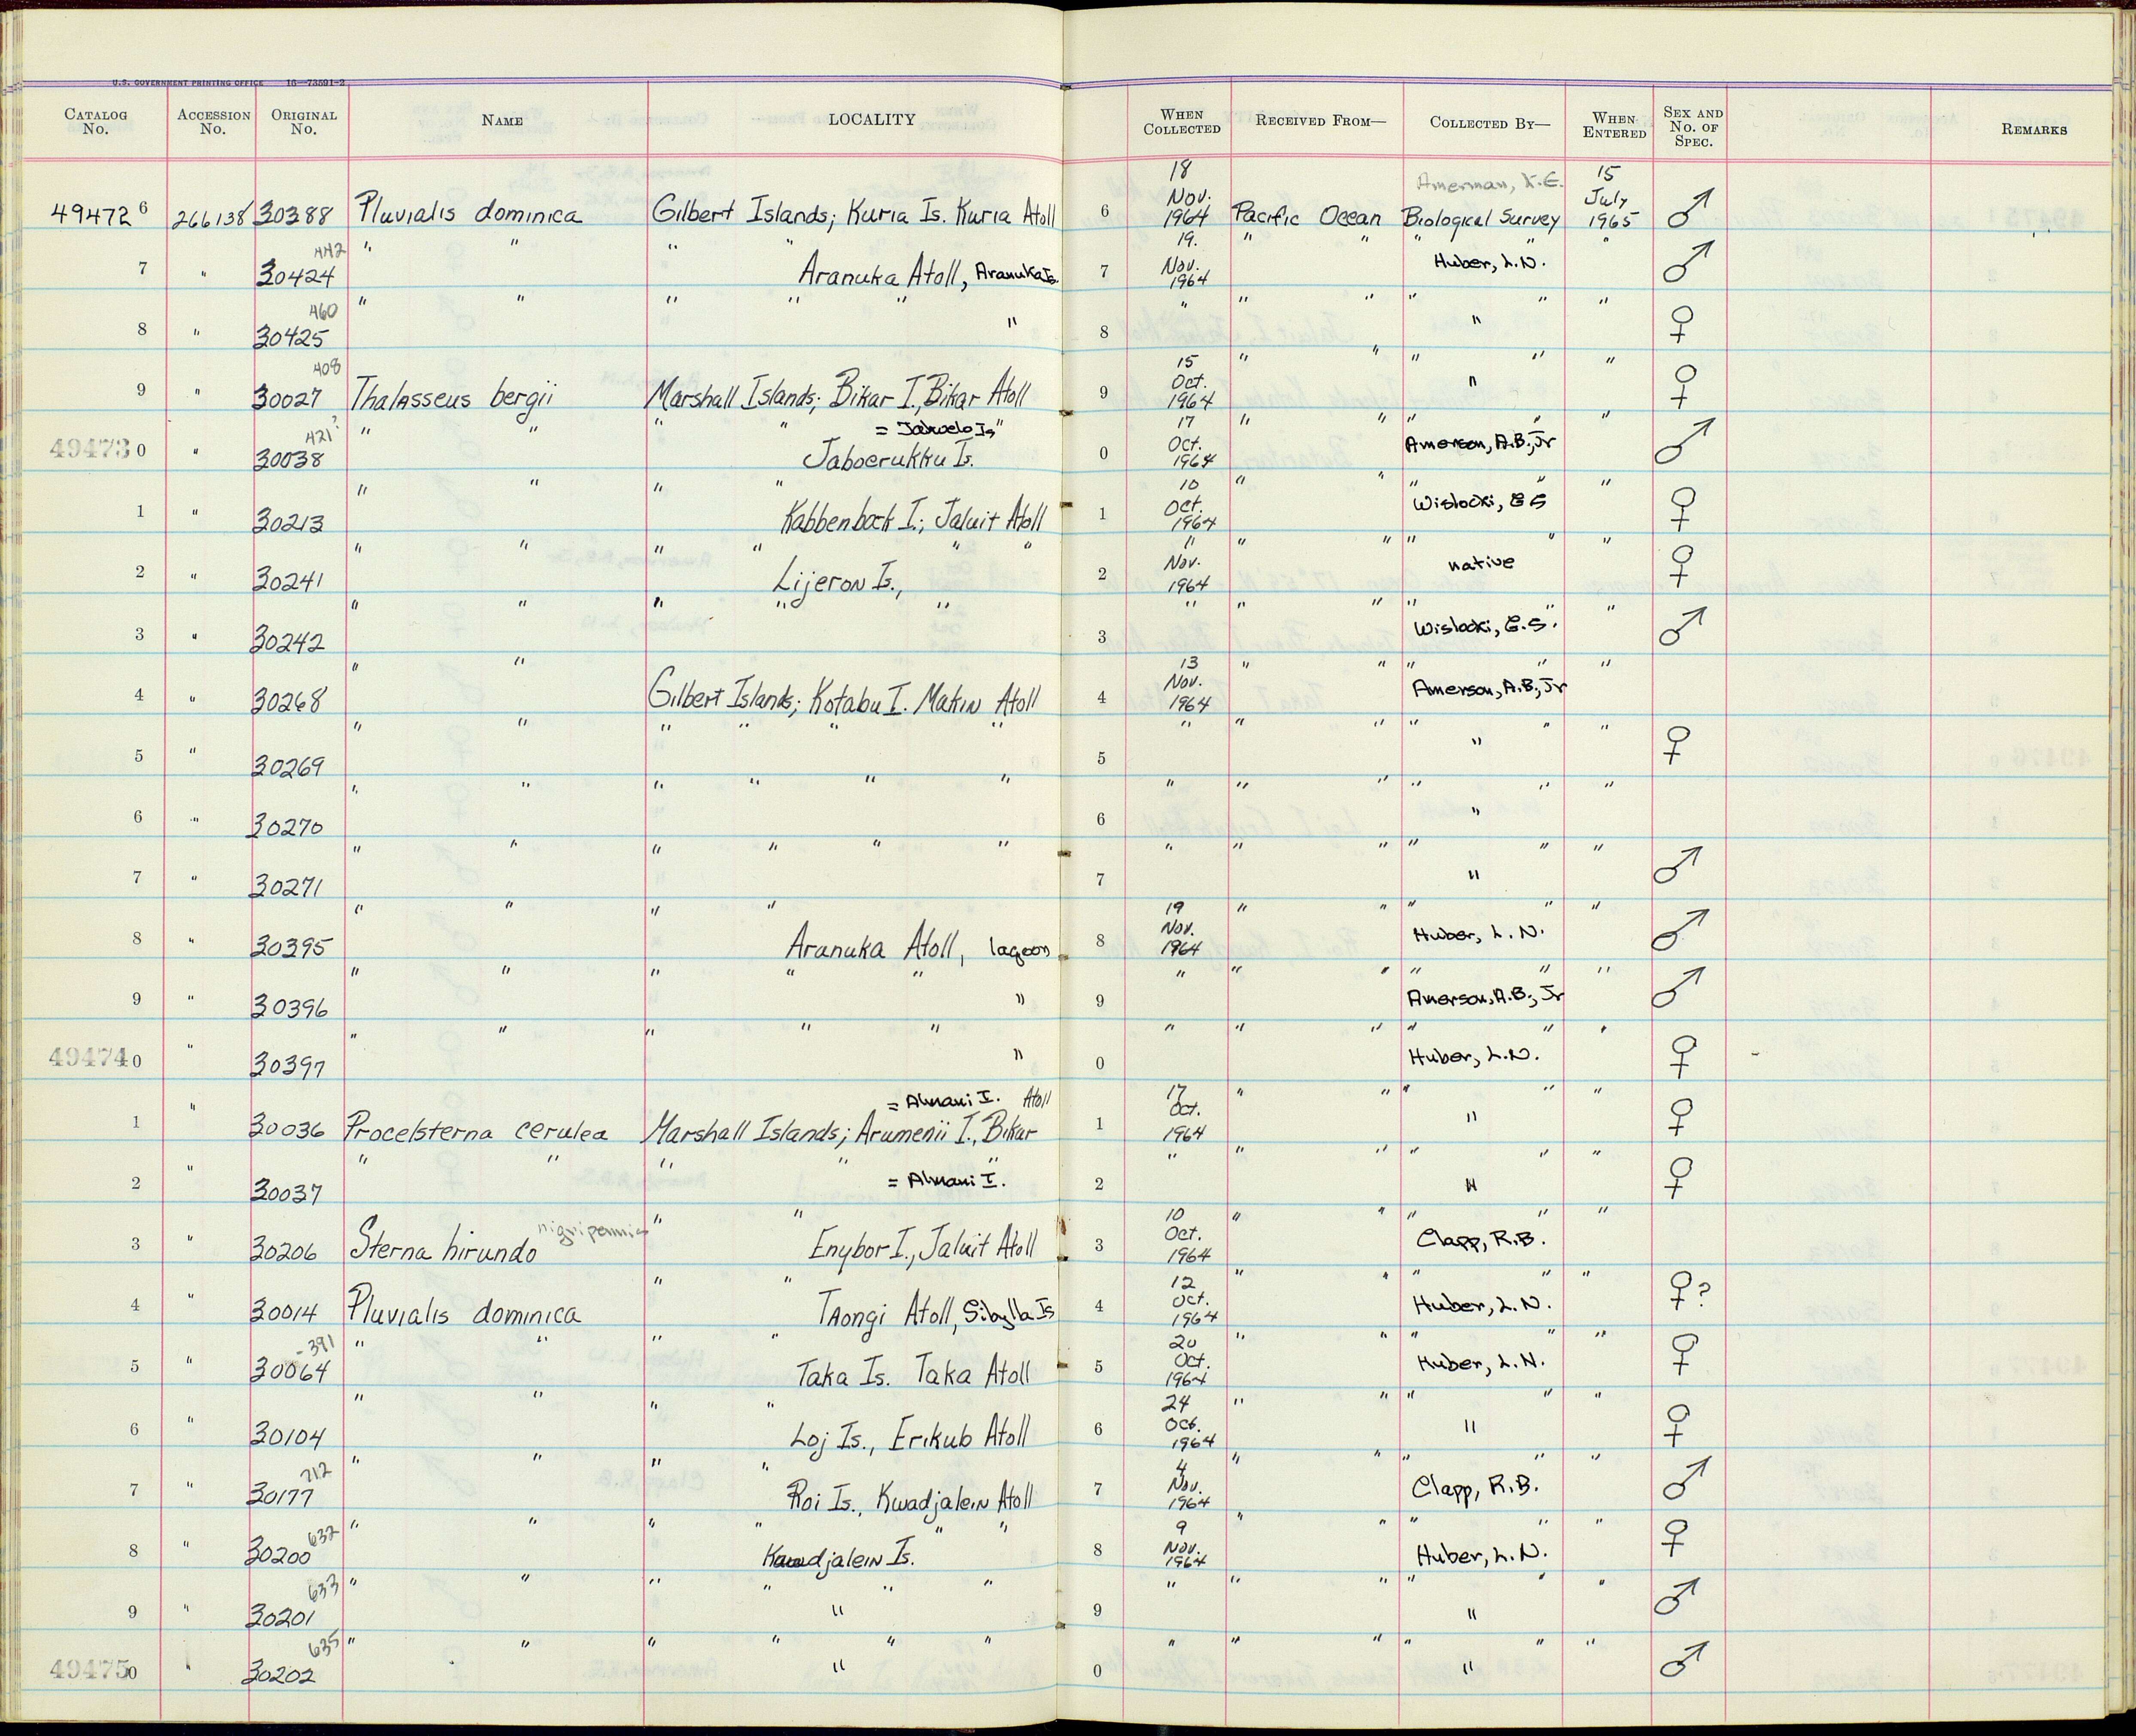 U.S. GOVERNMENT PRINTING OFFICE 16—73591-2
CATALOG No. ACCESSION No. ORIGINAL No. NAME LOCALITY WHEN COLLECTED RECEIVED FROM— COLLECTED BY— WHEN ENTERED SEX AND No. OF SPEC. REMARKS
49472 6 266138 30388 Pluvialis dominica Gilbert Islands; Kuria Is. Kuria Atoll 6 18 Nov. 1964 Pacific Ocean Biological Survey Amerman, K.E. 15 July 1965 ♂
7 " 442 30424 " " " " Aranuka Atoll, Aranuka Is. 7 19. Nov. 1964 " " " " Huber, L.N. " ♂
8 " 460 30425 " " " " " " 8 " " " " " " " ♀
9 " 408 30027 Thalasseus bergii Marshall Islands; Bikar I., Bikar Atoll 9 15 Oct. 1964 " " " " " " ♀
49473 0 " 421 30038 " " " " = Jabwelo Is " Jaboerukku Is. 0 17 Oct. 1964 " " " " Amerson, A.B., Jr " ♂
1 " 30213 " " " " Kabbenbock I.; Jaluit Atoll 1 10 Oct. 1964 " " " " Wislocki, G S " ♀
2 " 30241 " " " " Lijeron Is., " " 2 11 Nov. 1964 " " " " native " ♀
3 " 30242 " " " " " 3 " " " " " Wislocki, G.S. " ♂
4 " 30268 " " Gilbert Islands; Kotabu I. Makin Atoll 4 13 Nov. 1964 " " " " Amerson, A.B., Jr "
5 " 30269 " " " " " " 5 " " " " " " " ♀
6 " 30270 " " " " " " 6 " " " " " " "
7 " 30271 " " " " " " 7 " " " " " " " ♂
8 " 30395 " " " " Aranuka Atoll, lagoon 8 19 Nov. 1964 " " " " Huber, L. N. " ♂
9 " 30396 " " " " " " 9 " " " " " Amerson, A.B., Jr " ♂
49474 0 " 30397 " " " " " " 0 " " " " " Huber, L.N. " ♀
1 " 30036 Procelsterna cerulea Marshall Islands; Arumenii I., Bikar = Almani I. Atoll 1 17 Oct. 1964 " " " " " " ♀
2 " 30037 " " " " " = Almani I. 2 " " " " " " " ♀
3 " 30206 Sterna hirundo nigripennis " " Enybor I., Jaluit Atoll 3 10 Oct. 1964 " " " " Clapp, R.B. "
4 " 30014 Pluvialis dominica " " Taongi Atoll, Sibylla Is 4 12 Oct. 1964 " " " " Huber, L.N. " ♀?
5 " -391 30064 " " " " Taka Is. Taka Atoll 5 20 Oct. 1964 " " " " Huber, L.N. " ♀
6 " 30104 " " " " Loj Is., Erikub Atoll 6 24 Oct. 1964 " " " " " " ♀
7 " 212 30177 " " " " Roi Is., Kwadjalein Atoll 7 4 Nov. 1964 " " " " Clapp, R.B. " ♂
8 " 632 30200 " " " " Kwadjalein Is. " " 8 9 Nov. 1964 " " " " Huber, L.N. " ♀
9 " 633 30201 " " " " " " " 9 " " " " " " " ♂
49475 0 " 635 30202 " " " " " " " 0 " " " " " " " ♂